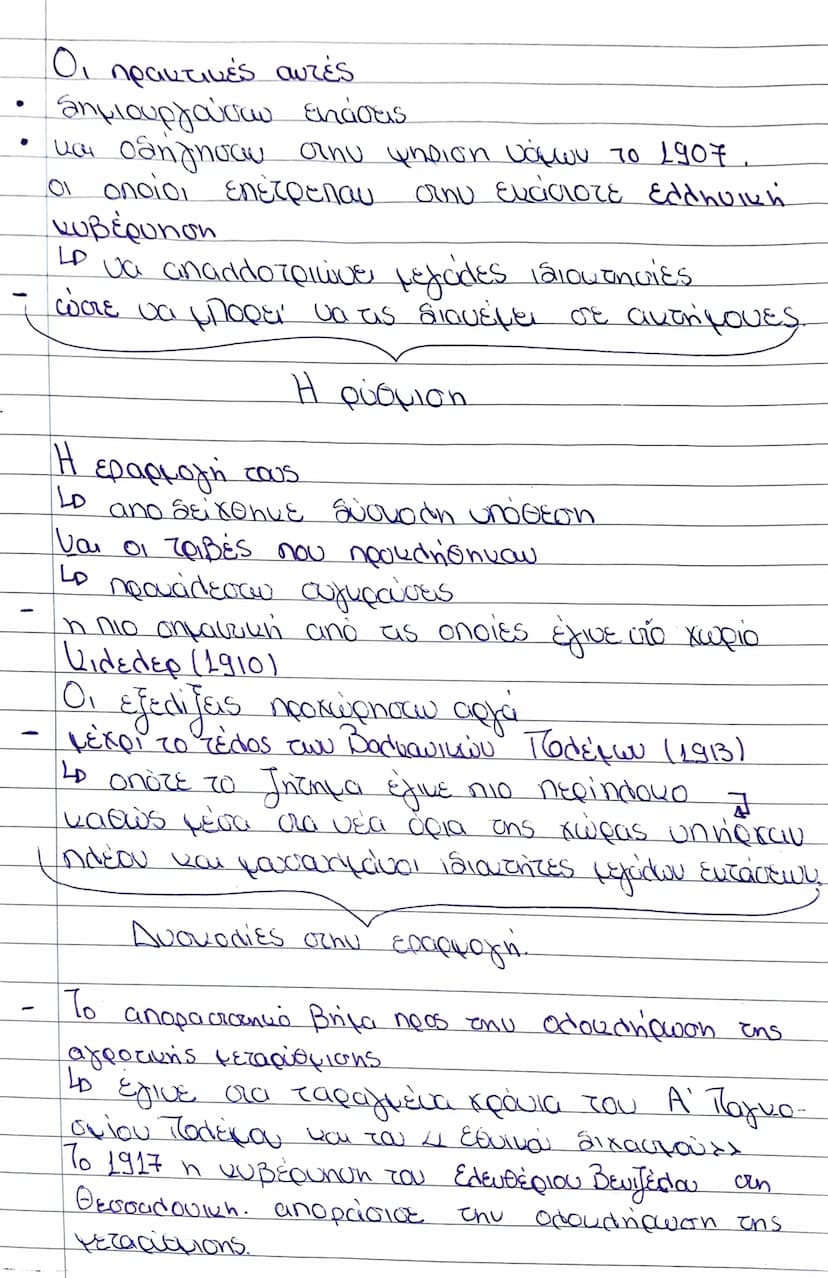 Οι πρακτικές αυτές
• δημιουργούσαν εντάσεις
• και οδήγησαν στην ψήφιση νόμων το 1907,
οι οποίοι επέτρεπαν στην εκάστοτε ελληνική
κυβέρνηση
↳ να απαλλοτριώνει μεγάλες ιδιοκτησίες
- ώστε να μπορεί να τις διανέμει σε ακτήμονες.
Η ρύθμιση
Η εφαρμογή τους
↳ αποδείχθηκε δύσκολη υπόθεση
και οι τριβές που προκλήθηκαν
↳ προκάλεσαν συγκρούσεις
- η πιο σημαντική από τις οποίες έγινε στο χωριό
Κιλελέρ (1910)
Οι εξελίξεις προχώρησαν αργά
- μέχρι το τέλος των Βαλκανικών Πολέμων (1913)
↳ οπότε το ζήτημα έγινε πιο περίπλοκο
καθώς μέσα στα νέα όρια της χώρας υπήρχαν
πλέον και μουσουλμάνοι ιδιοκτήτες μεγάλων εκτάσεων.
Δυσκολίες στην εφαρμογή.
- Το αποφασιστικό βήμα προς την ολοκλήρωση της
αγροτικής μεταρρύθμισης
↳ έγινε στα ταραγμένα χρόνια του Α' Παγκο-
σμίου Πολέμου και του << εθνικού διχασμού>>
Το 1917 η κυβέρνηση του Ελευθέριου Βενιζέλου στη
Θεσσαλονίκη. αποφάσισε την ολοκλήρωση της
μεταρρύθμισης.